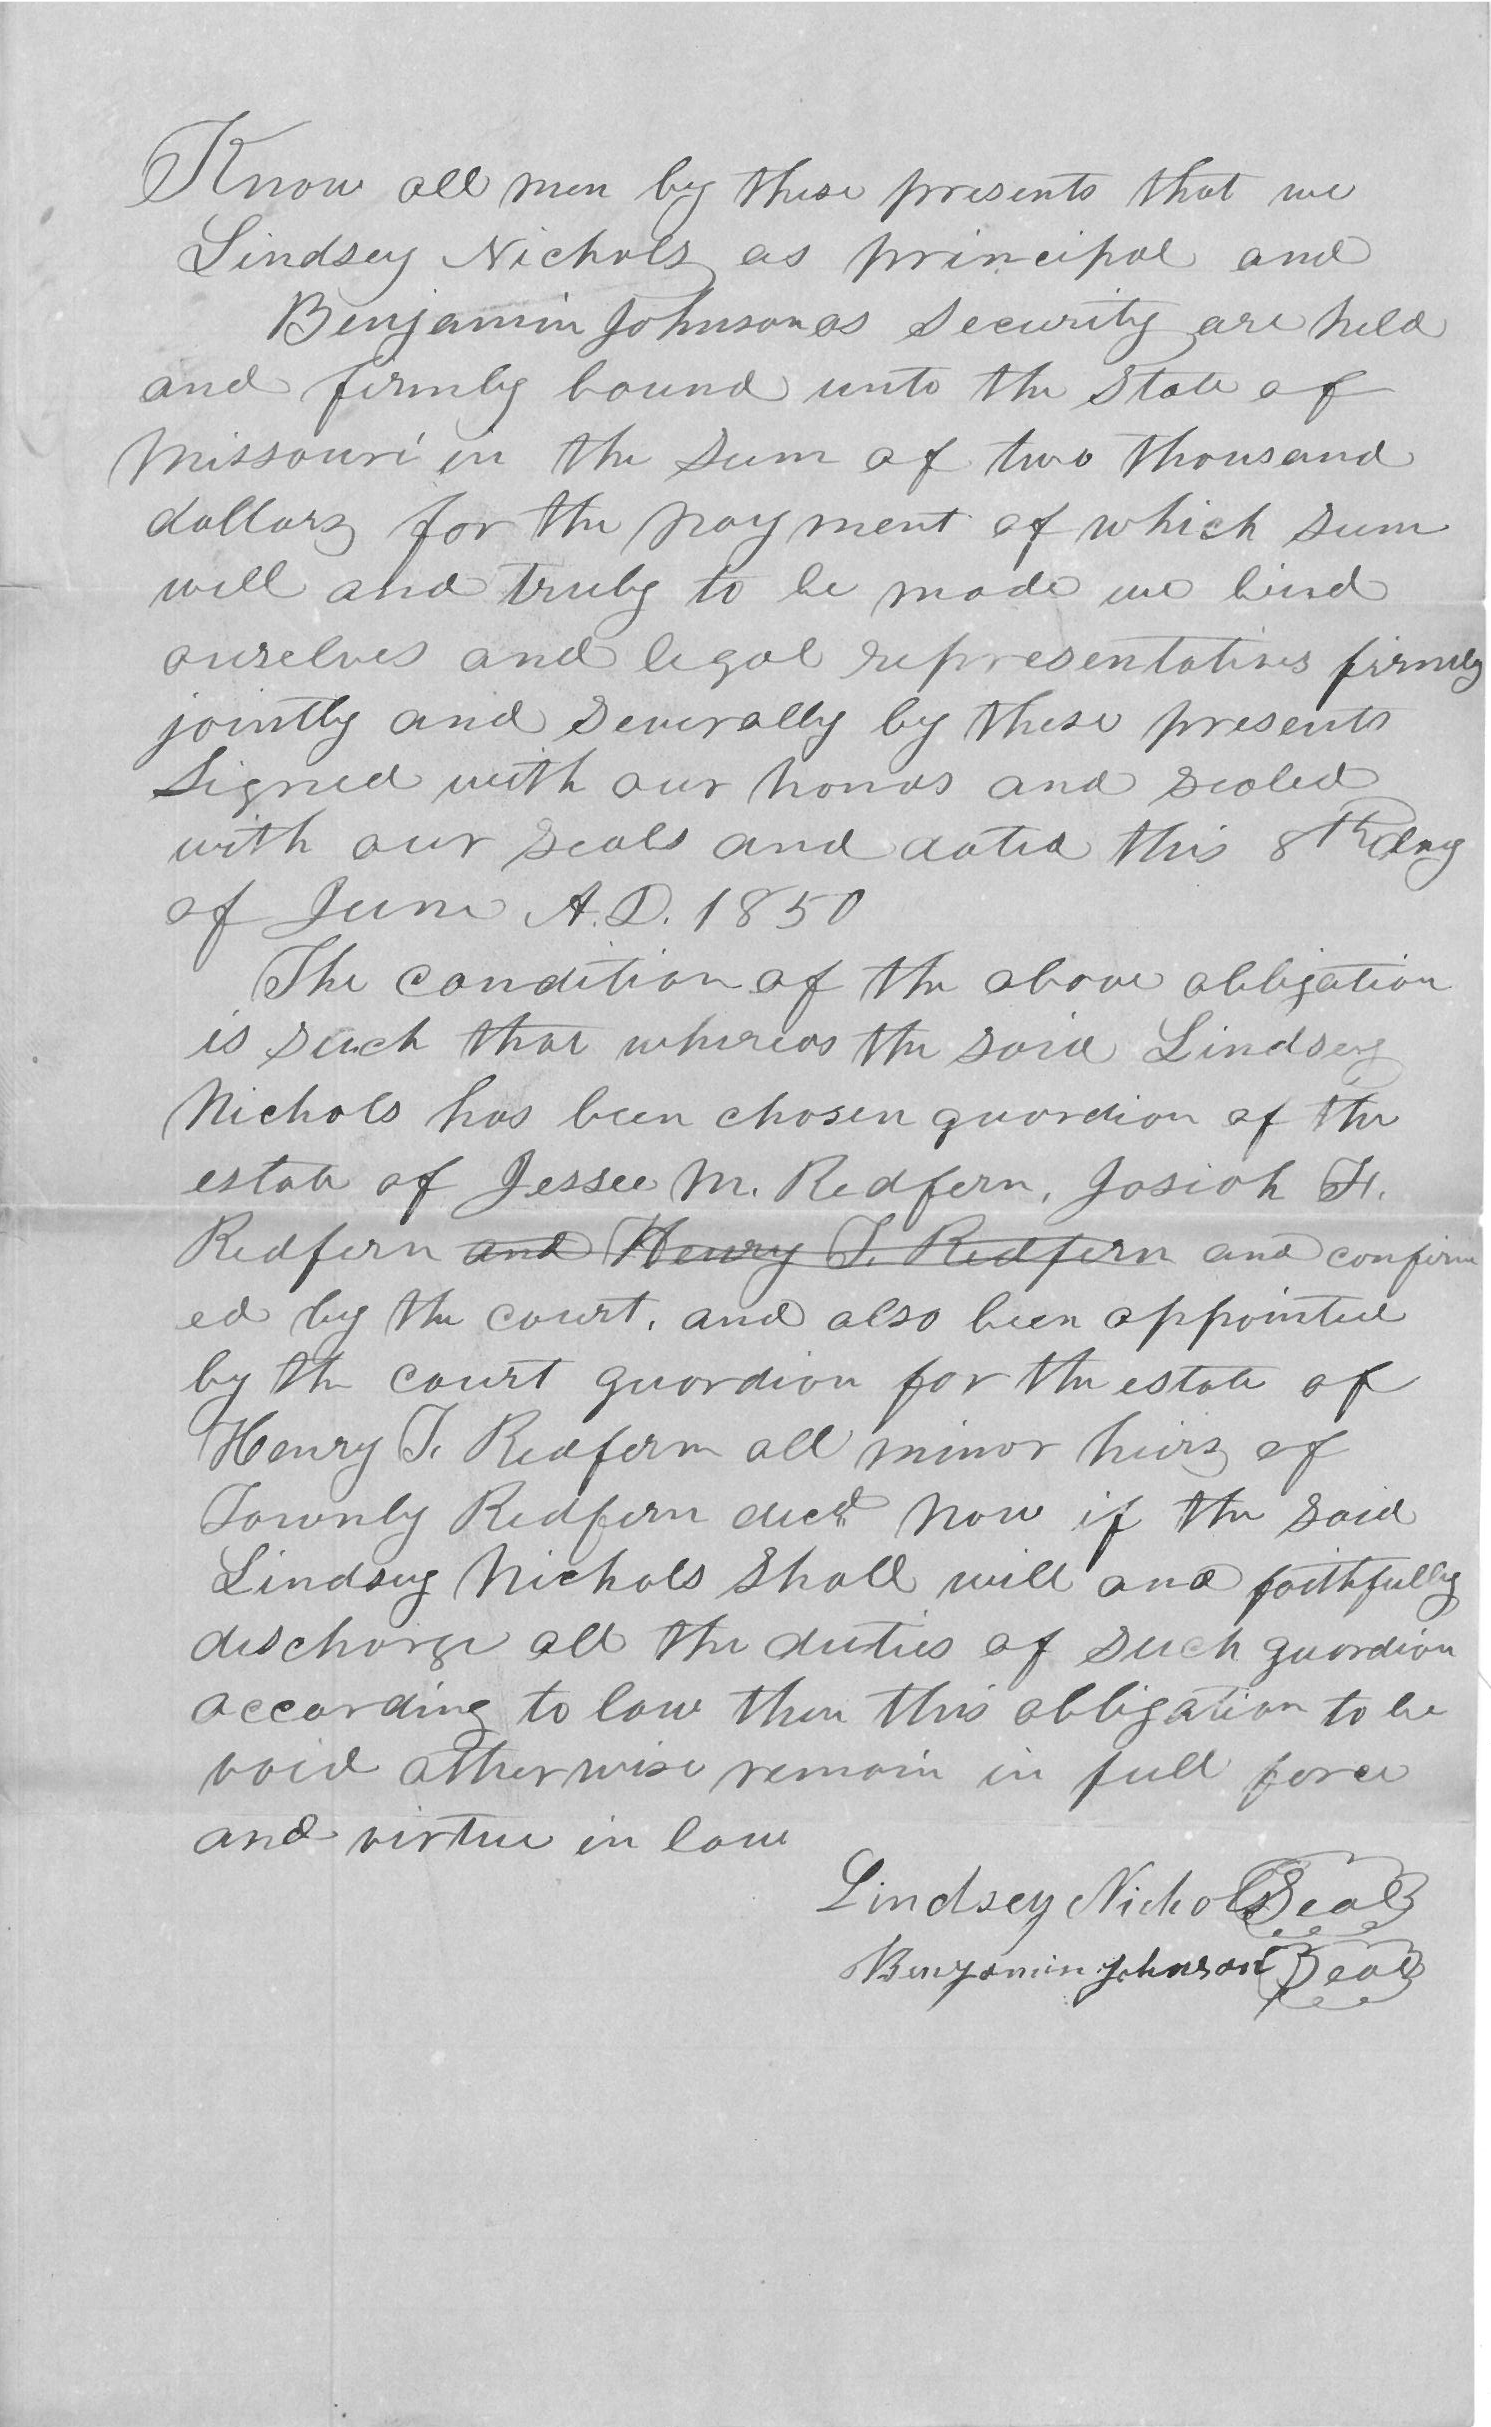 Know all men by these presents that we
Lindsey Nichols as principal and
Benjamin Johnson as security are held
and firmly bound unto the State of
Missouri in the sum of two thousand
dollars for the payment of which sum
well and truly to be made we bind
ourselves and legal representatives firmly
jointly and severally by these presents
signed with our hands and sealed
with our seals and dated this 8th day
of June A.D. 1850
The condition of the above obligation
is such that whereas the said Lindsey
Nichols has been chosen guardian of the
estate of Jessee M. Redfern, Josiah F.
Redfern and Henry T. Redfern and confirm
ed by the court, and also been appointed
by the court guardian for the estate of
Henry T. Redfern all minor heirs of
Townly Redfern decd now if the said
Lindsey Nichols shall well and faithfully
discharge all the duties of such guardian
according to law then this obligation to be
void otherwise remain in full force
and virtue in law
Lindsey Nichols Seal
Benjamin Johnson Seal